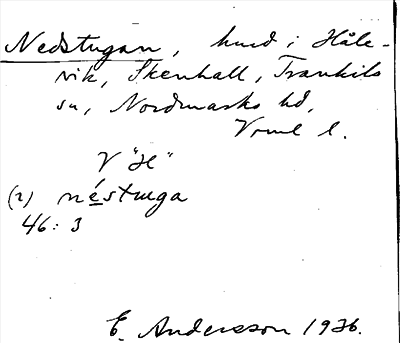 Nedstugan, hmd i Håle-
vik, Skenhall, Trankils
sn, Nordmarks hd,
Vrml l.
V "H"
(2) néstuga
46: 3
E. Andersson 1936.